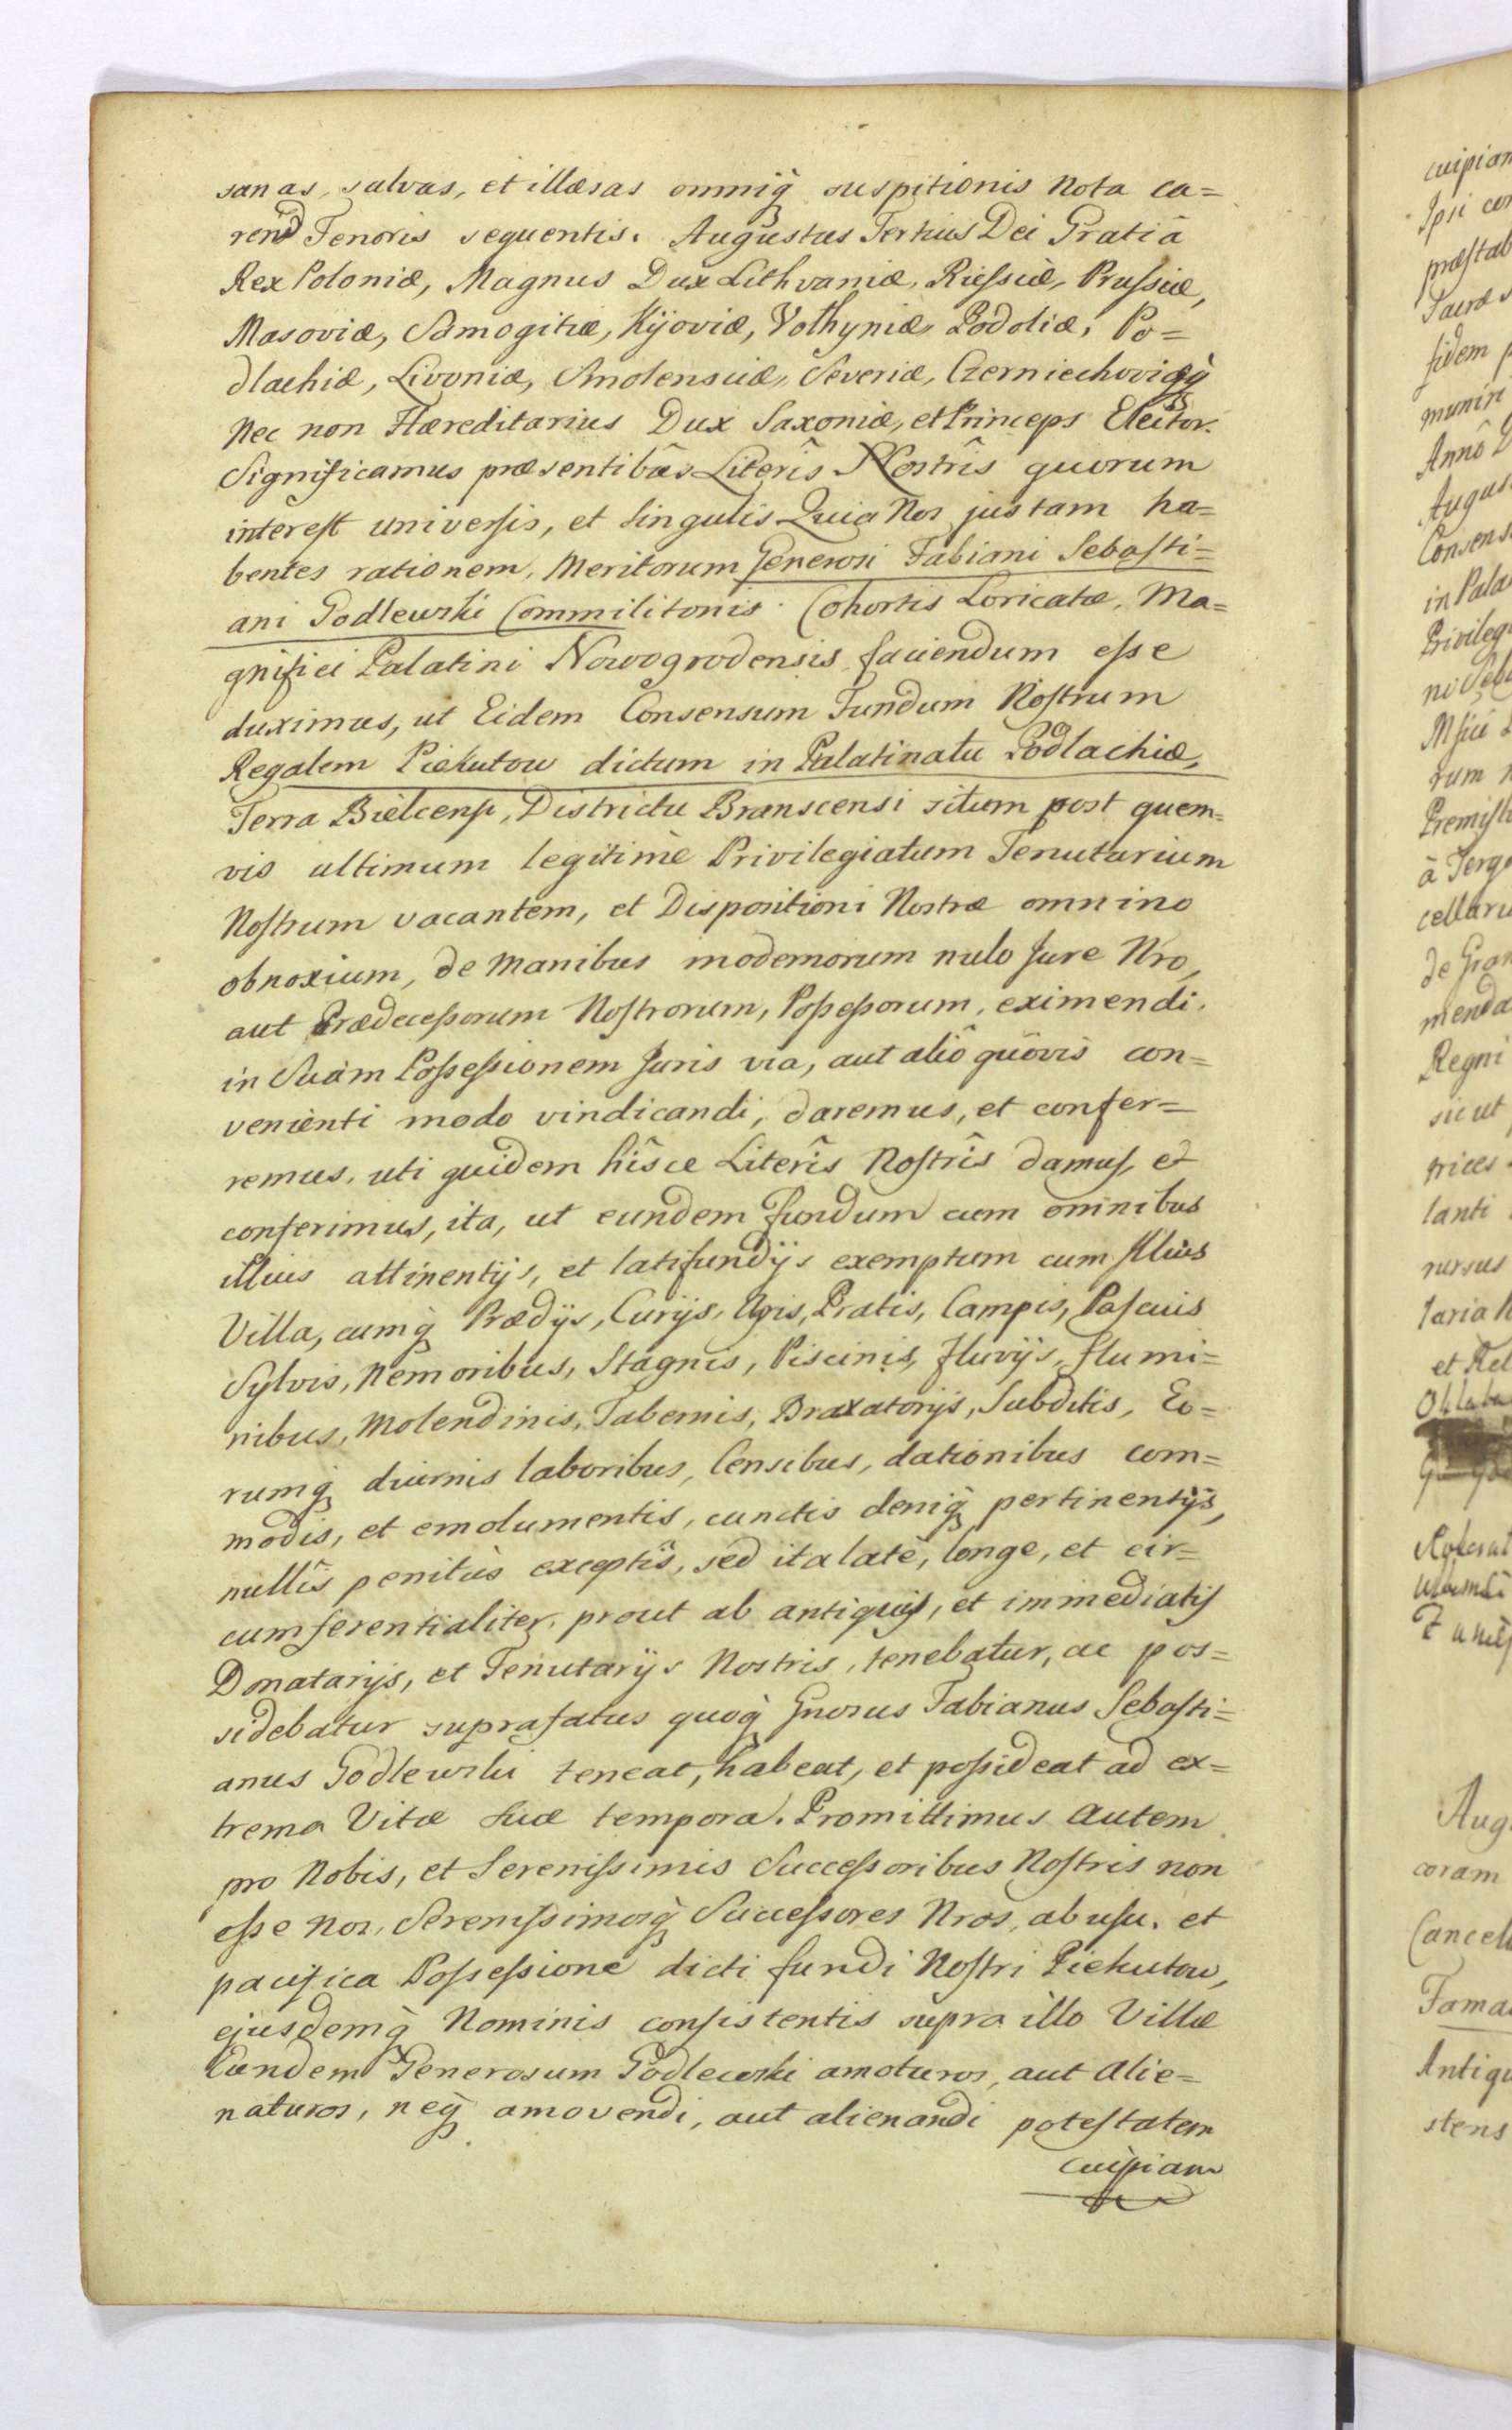 sanas, salvas, et illæsas omniq̀ suspitionis nota ca=
rend Tenoris sequentis. Augustus Tertius Dei Gratiâ
Rex Poloniæ, Magnus Dux Lithvaniæ, Rußiæ, Prußiæ,
Masoviæ, Samogitiæ, Kijoviæ, Volhyniæ, Podoliæ, Po=
dlachiæ, Livoniæ, Smolensciæ, Severiæ, Czerniechoviæq̀
Nec non Hæreditarius Dux Saxoniæ, et Princeps Elector.
Significamus præsentibûs Literîs Nostrîs quorum
interest universis, et singulis Quia Nos justam ha=
bentes rationem, Meritorum Generosi Fabiani Sebasti=
ani Godlewski Commilitonis Cohortis Loricatæ, Ma=
gnifici Palatini Nowogrodensis faciendum esse
duximus, ut Eidem Consensum Fundum Nostrum
Regalem Piekutow dictum in Palatinatu Podlachiæ,
Terra Bielcens, Districtu Branscensi situm post quem=
vis ultimum legitimè Privilegiatum Tenutarium
Nostrum vacantem, et Dispositioni Nostræ omnino
obnoxium, de Manibus modernorum nulo Jure Nro,
aut Prædecessorum Nostrorum, Possessorum, eximendi,
in Suam Possessionem Juris via, aut aliô quôvis con=
venienti modo vindicandi, daremus, et confer=
remus, uti quidem hîsce Literîs Nostrîs damus, et
conferimus, ita, ut eundem Fundum cum omnibus
illius attinentijs, et latifundijs exemptum cum Illius
Villa, cumq̀ Prædijs, Curijs, Agris, Pratis, Campis, Pascuis
Sylvis, Nemoribus, Stagnis, Piscinis, fluvijs, flumi=
nibus, Molendinis, Tabernis, Braxatorijs, Subditis, Eo=
rumq̀ diurnis laboribus, Censibus, dationibus com=
modis, et emolumentis, cunctis deniq̀ pertinentijs,
nullîs penitùs exceptîs, sed ita latè, longe, et cir=
cumferentialiter, prout ab antiquis, et immediatis
Donatarijs, et Tenutarijs Nostris, tenebatur, ac pos=
sidebatur suprafatus quoq̀ Gnosus Fabianus Sebasti=
anus Godlewski teneat, habeat, et possideat ad ex=
trema Vitæ suæ tempora. Promittimus autem
pro Nobis, et Serenissimis Successoribus Nostris non
esse nos, Serenissimosq̀ Successores Nros, ab usu, et
pacifica Possessione dicti fundi Nostri Piekutow,
ejusdemq̀ Nominis consistentis supra illo Villæ
Eundem Generosum Godlewski amoturos, aut alie=
naturos, neq̀ amovendi, aut alienandi potestatem
cuipiam
cuipiam
Ipsi
fidem
munire
Annô
August
Consens
in Pala
Privileg
à Tergo
cellari
Regni
sicut
lanti
rursus
et Rel
Aug
coram
Cancel
Fama
Antiqu
stens